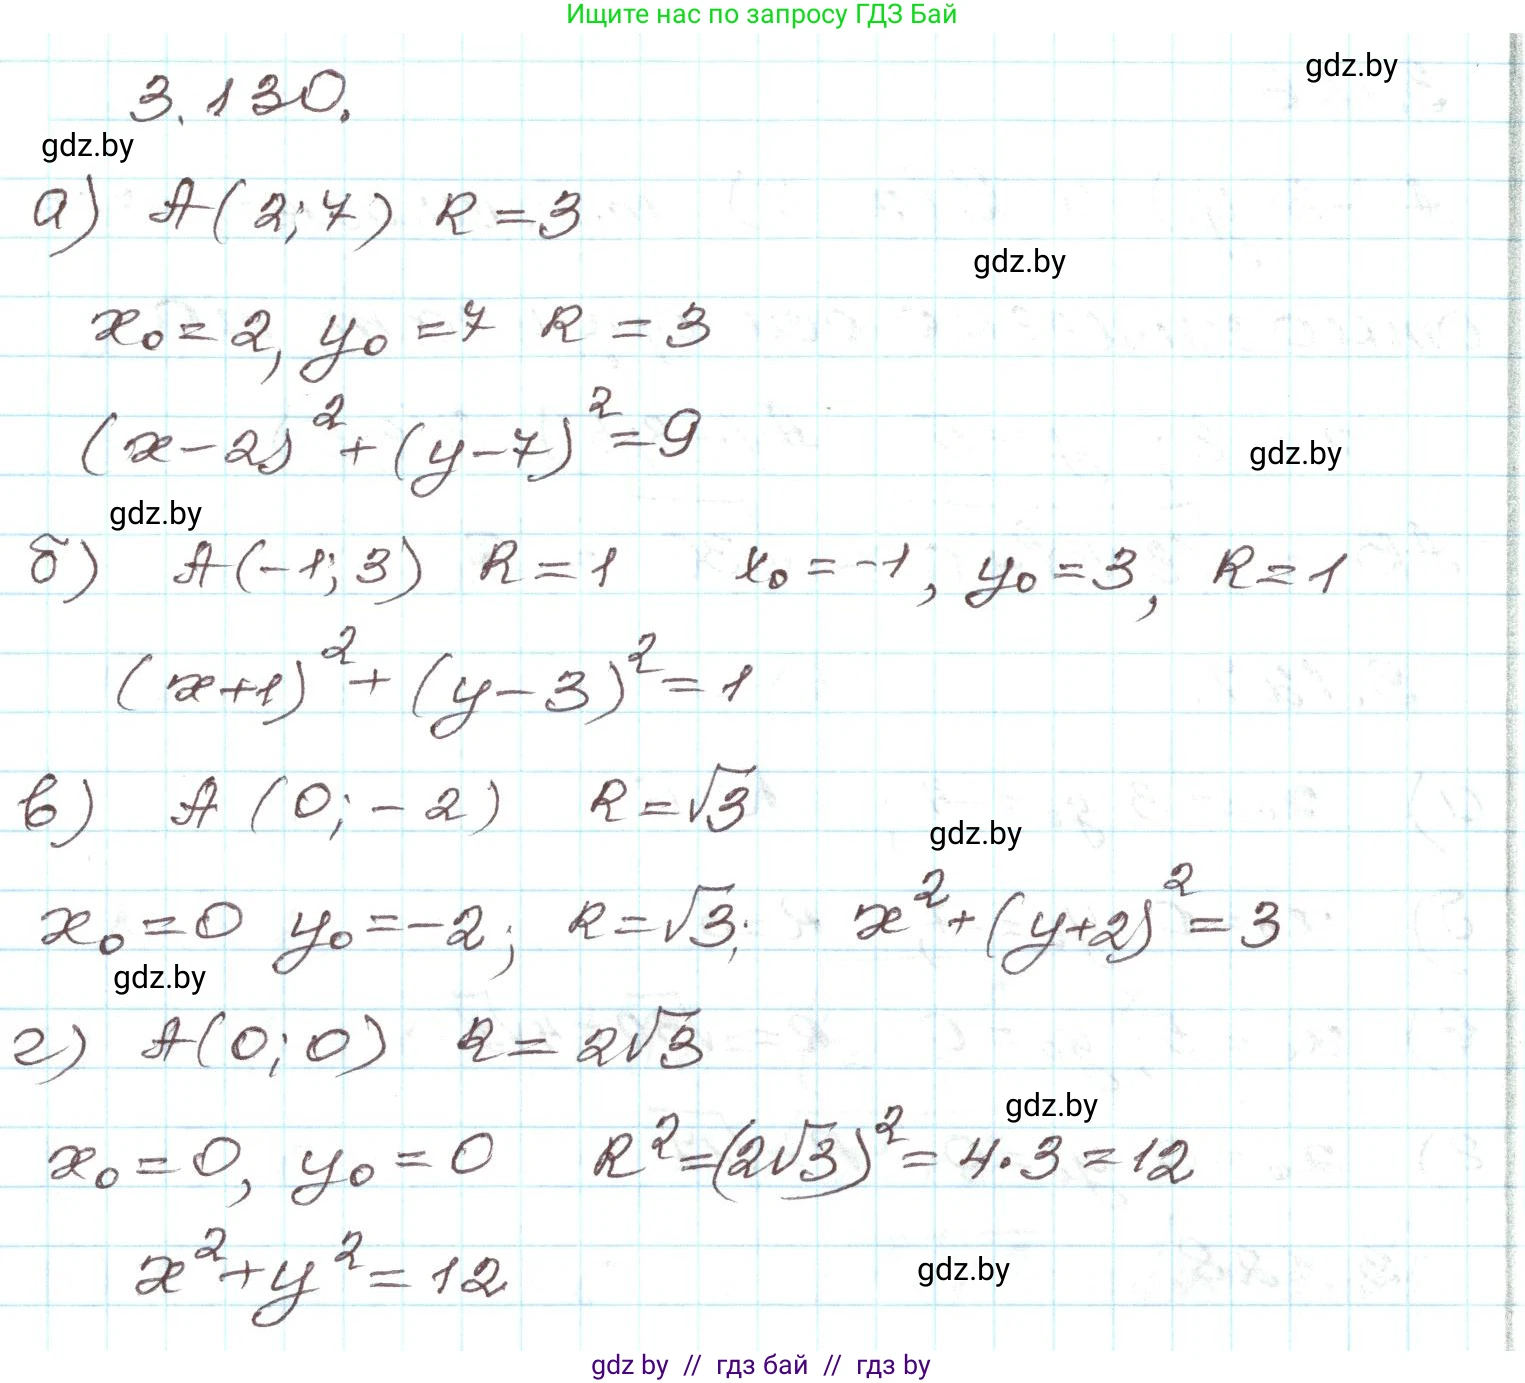 Ищите нас по запросу ГДЗ Бай
gdz.by
3.130.
gdz.by
а) A(2;7) R=3
gdz.by
x₀=2, y₀=7 R=3
(x-2)²+(y-7)²=9
gdz.by
gdz.by
б) A(-1;3) R=1 x₀=-1, y₀=3, R=1
(x+1)²+(y-3)²=1
в) A(0;-2) R=√3
gdz.by
x₀=0 y₀=-2; R=√3; x²+(y+2)²=3
gdz.by
г) A(0;0) R=2√3
gdz.by
x₀=0, y₀=0 R²=(2√3)²=4·3=12
x²+y²=12
gdz.by
gdz by // гдз бай // гдз by